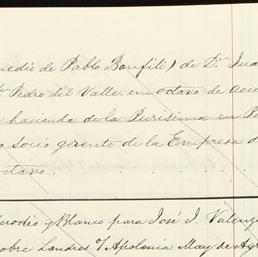 medio de Pablo Bonfiti) de Dn Jua
Pedro del Valle, en octavo de acci
hacienda de la Purísima en P
o socio gerente de la Empresa d
octavo.
erodio y Blanco para José J. Valenz
obre Londres o/ Apolonia May de Ag